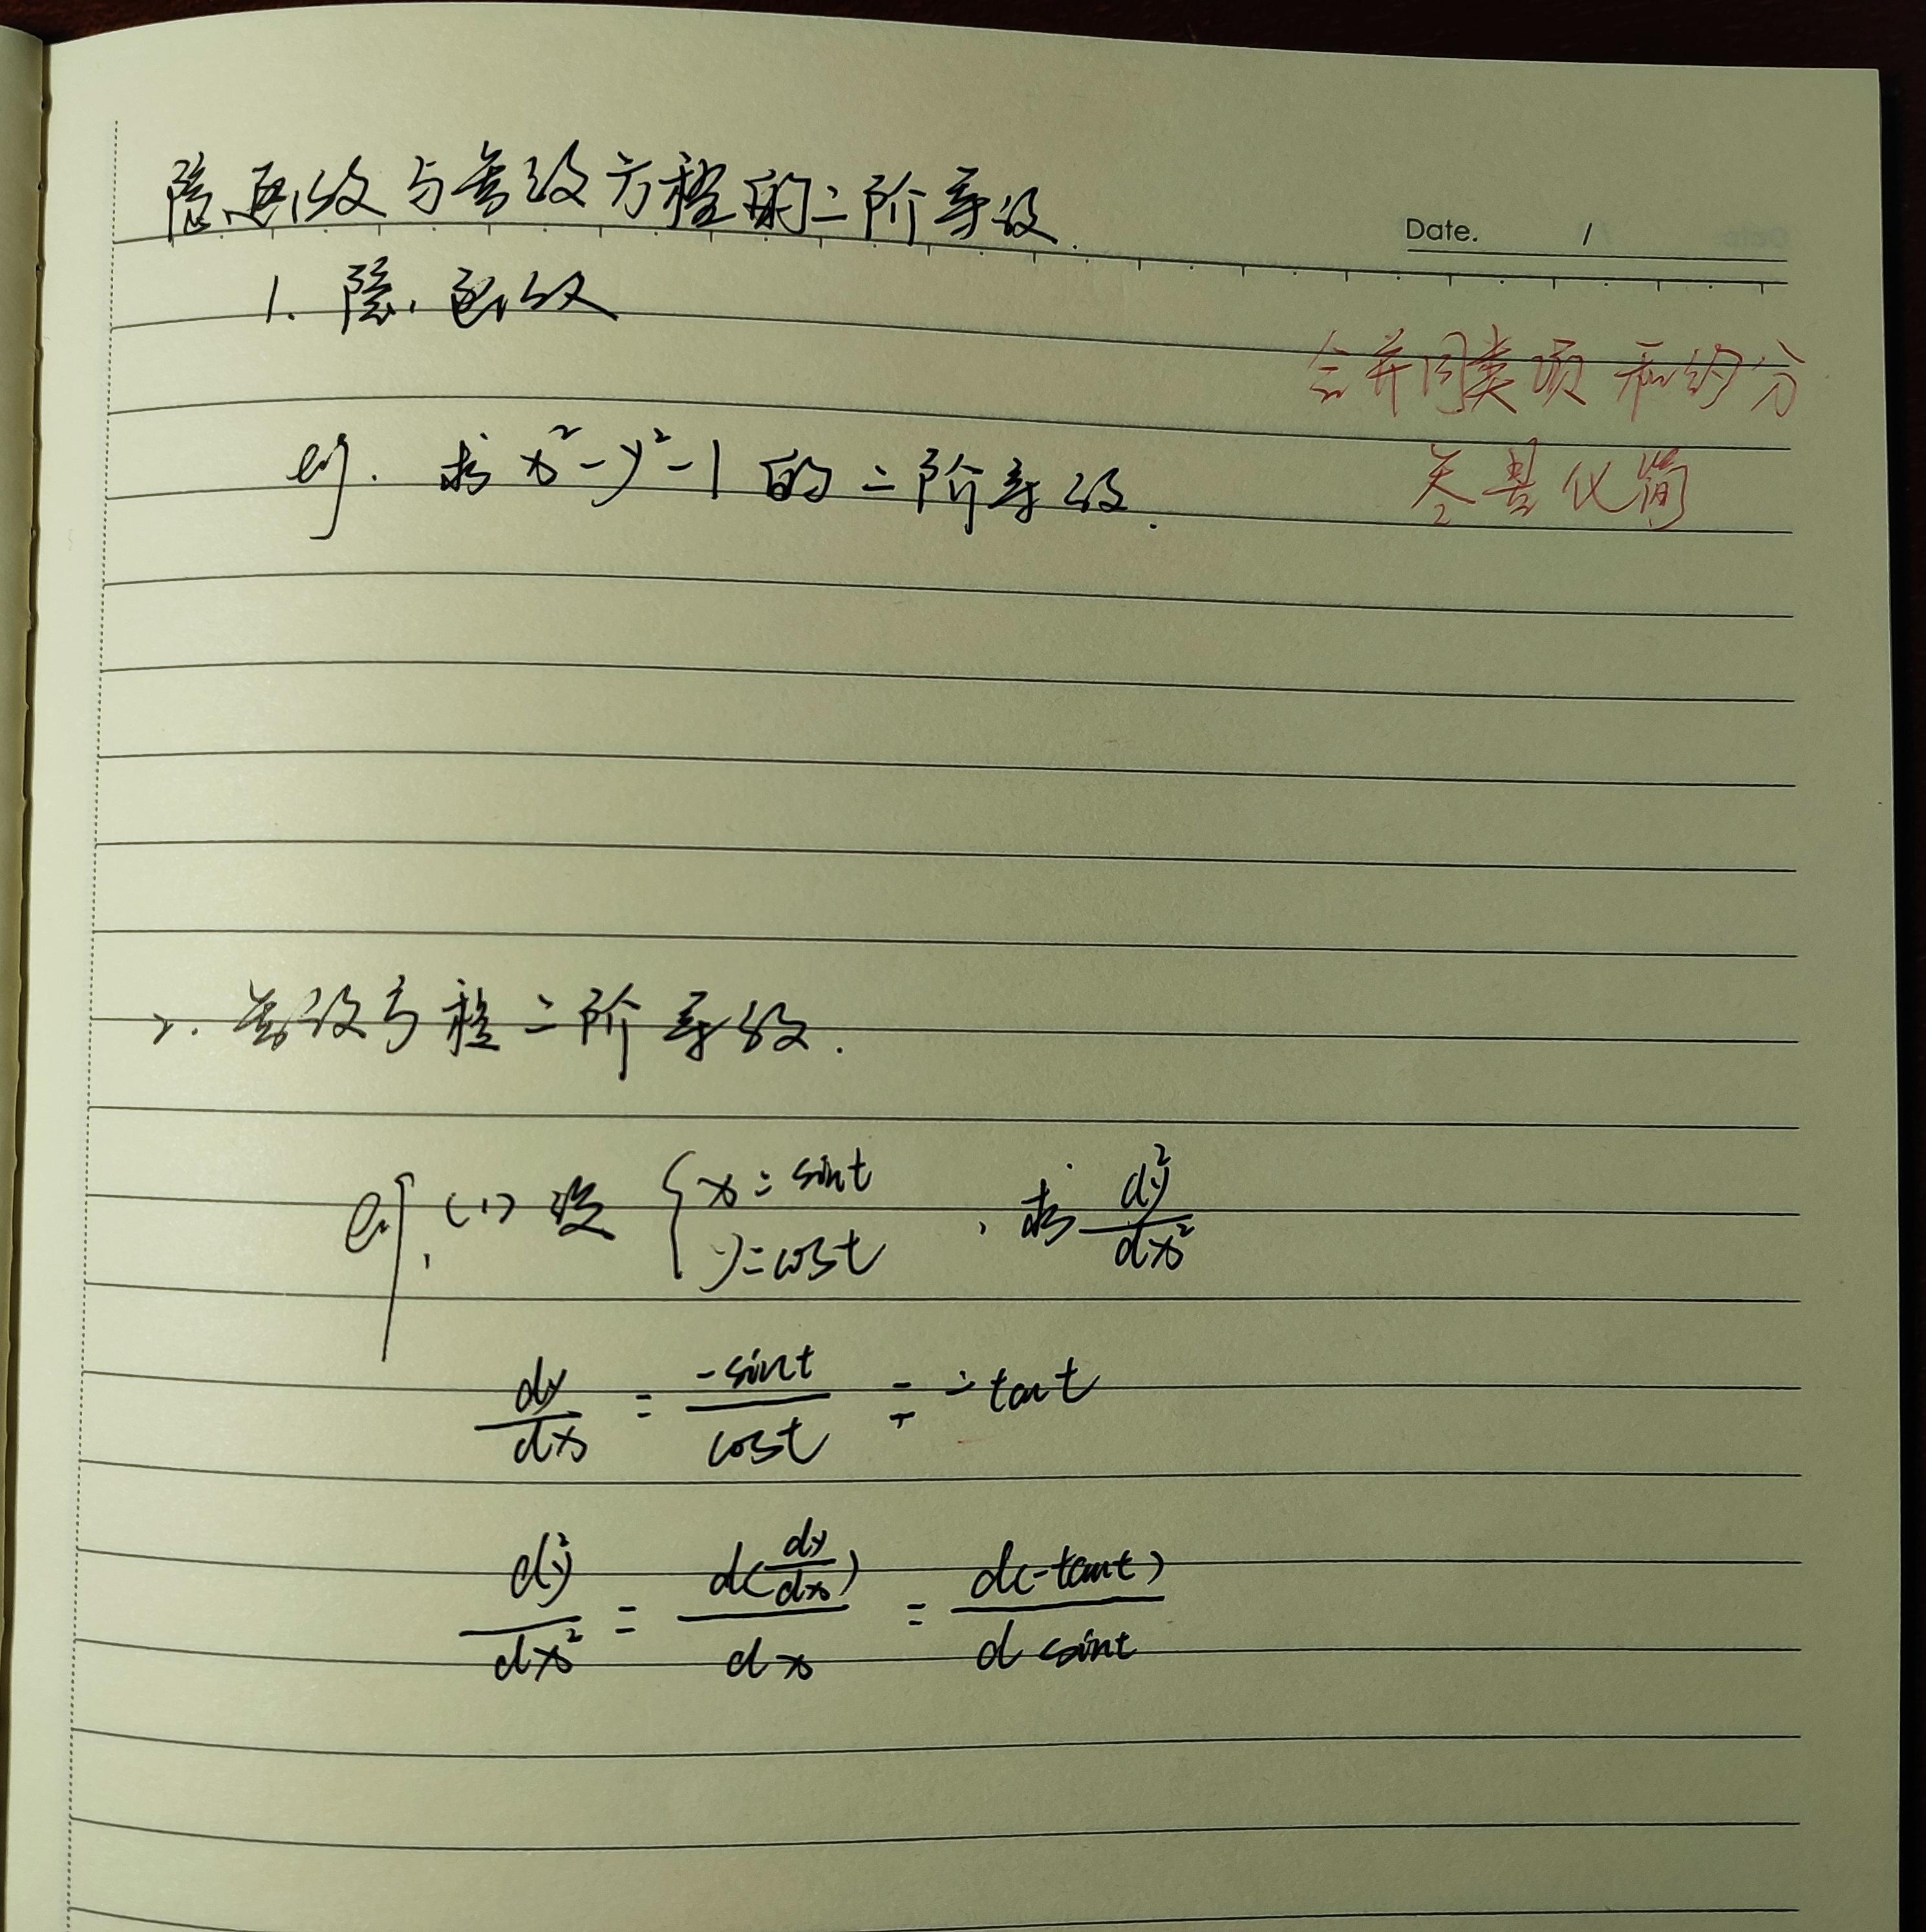 隐函数与参数方程的二阶导数.
Date. /
1. 隐函数
合并同类项和约分
eg. 求 x²-y²-1 的二阶导数.
尽量化简
2. 参数方程二阶导数.
eg. (1) 设 { x = sint , y = cost , 求 dy²/dx²
dy/dx = -sint/cost = -tant
dy²/dx² = d(dy/dx)/dx = d(-tant)/d sint